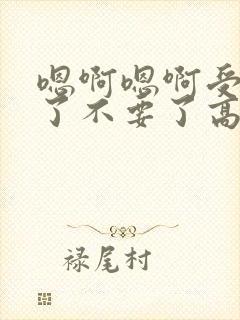 嗯啊嗯啊受
了不要了高
禄尾村